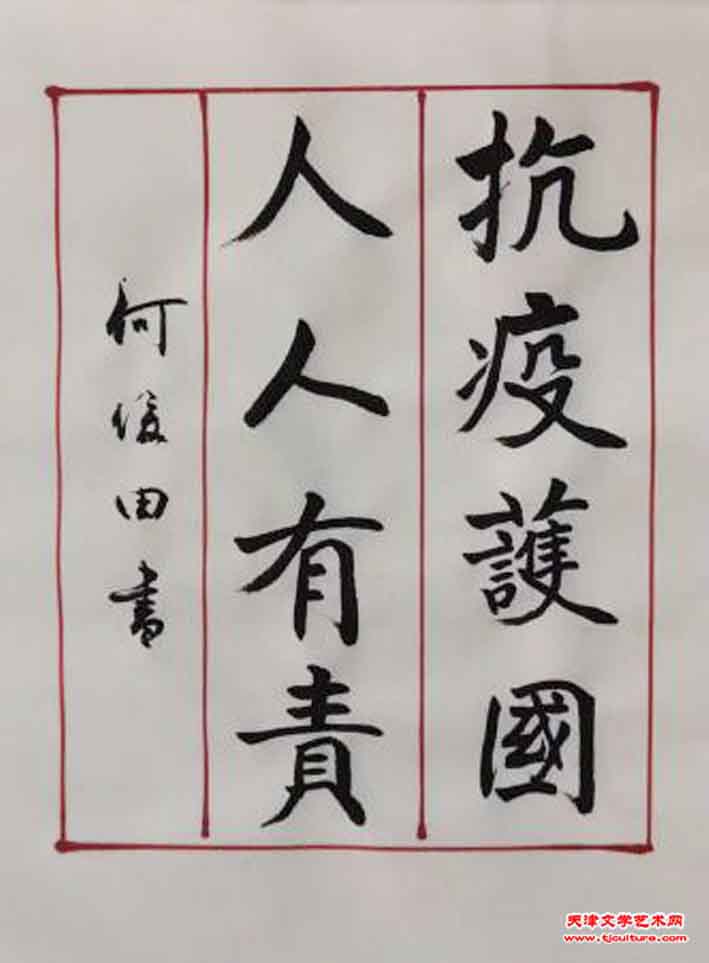 抗疫護國
人人有責
何俊田書
天津文学艺术网
www.tjculture.com